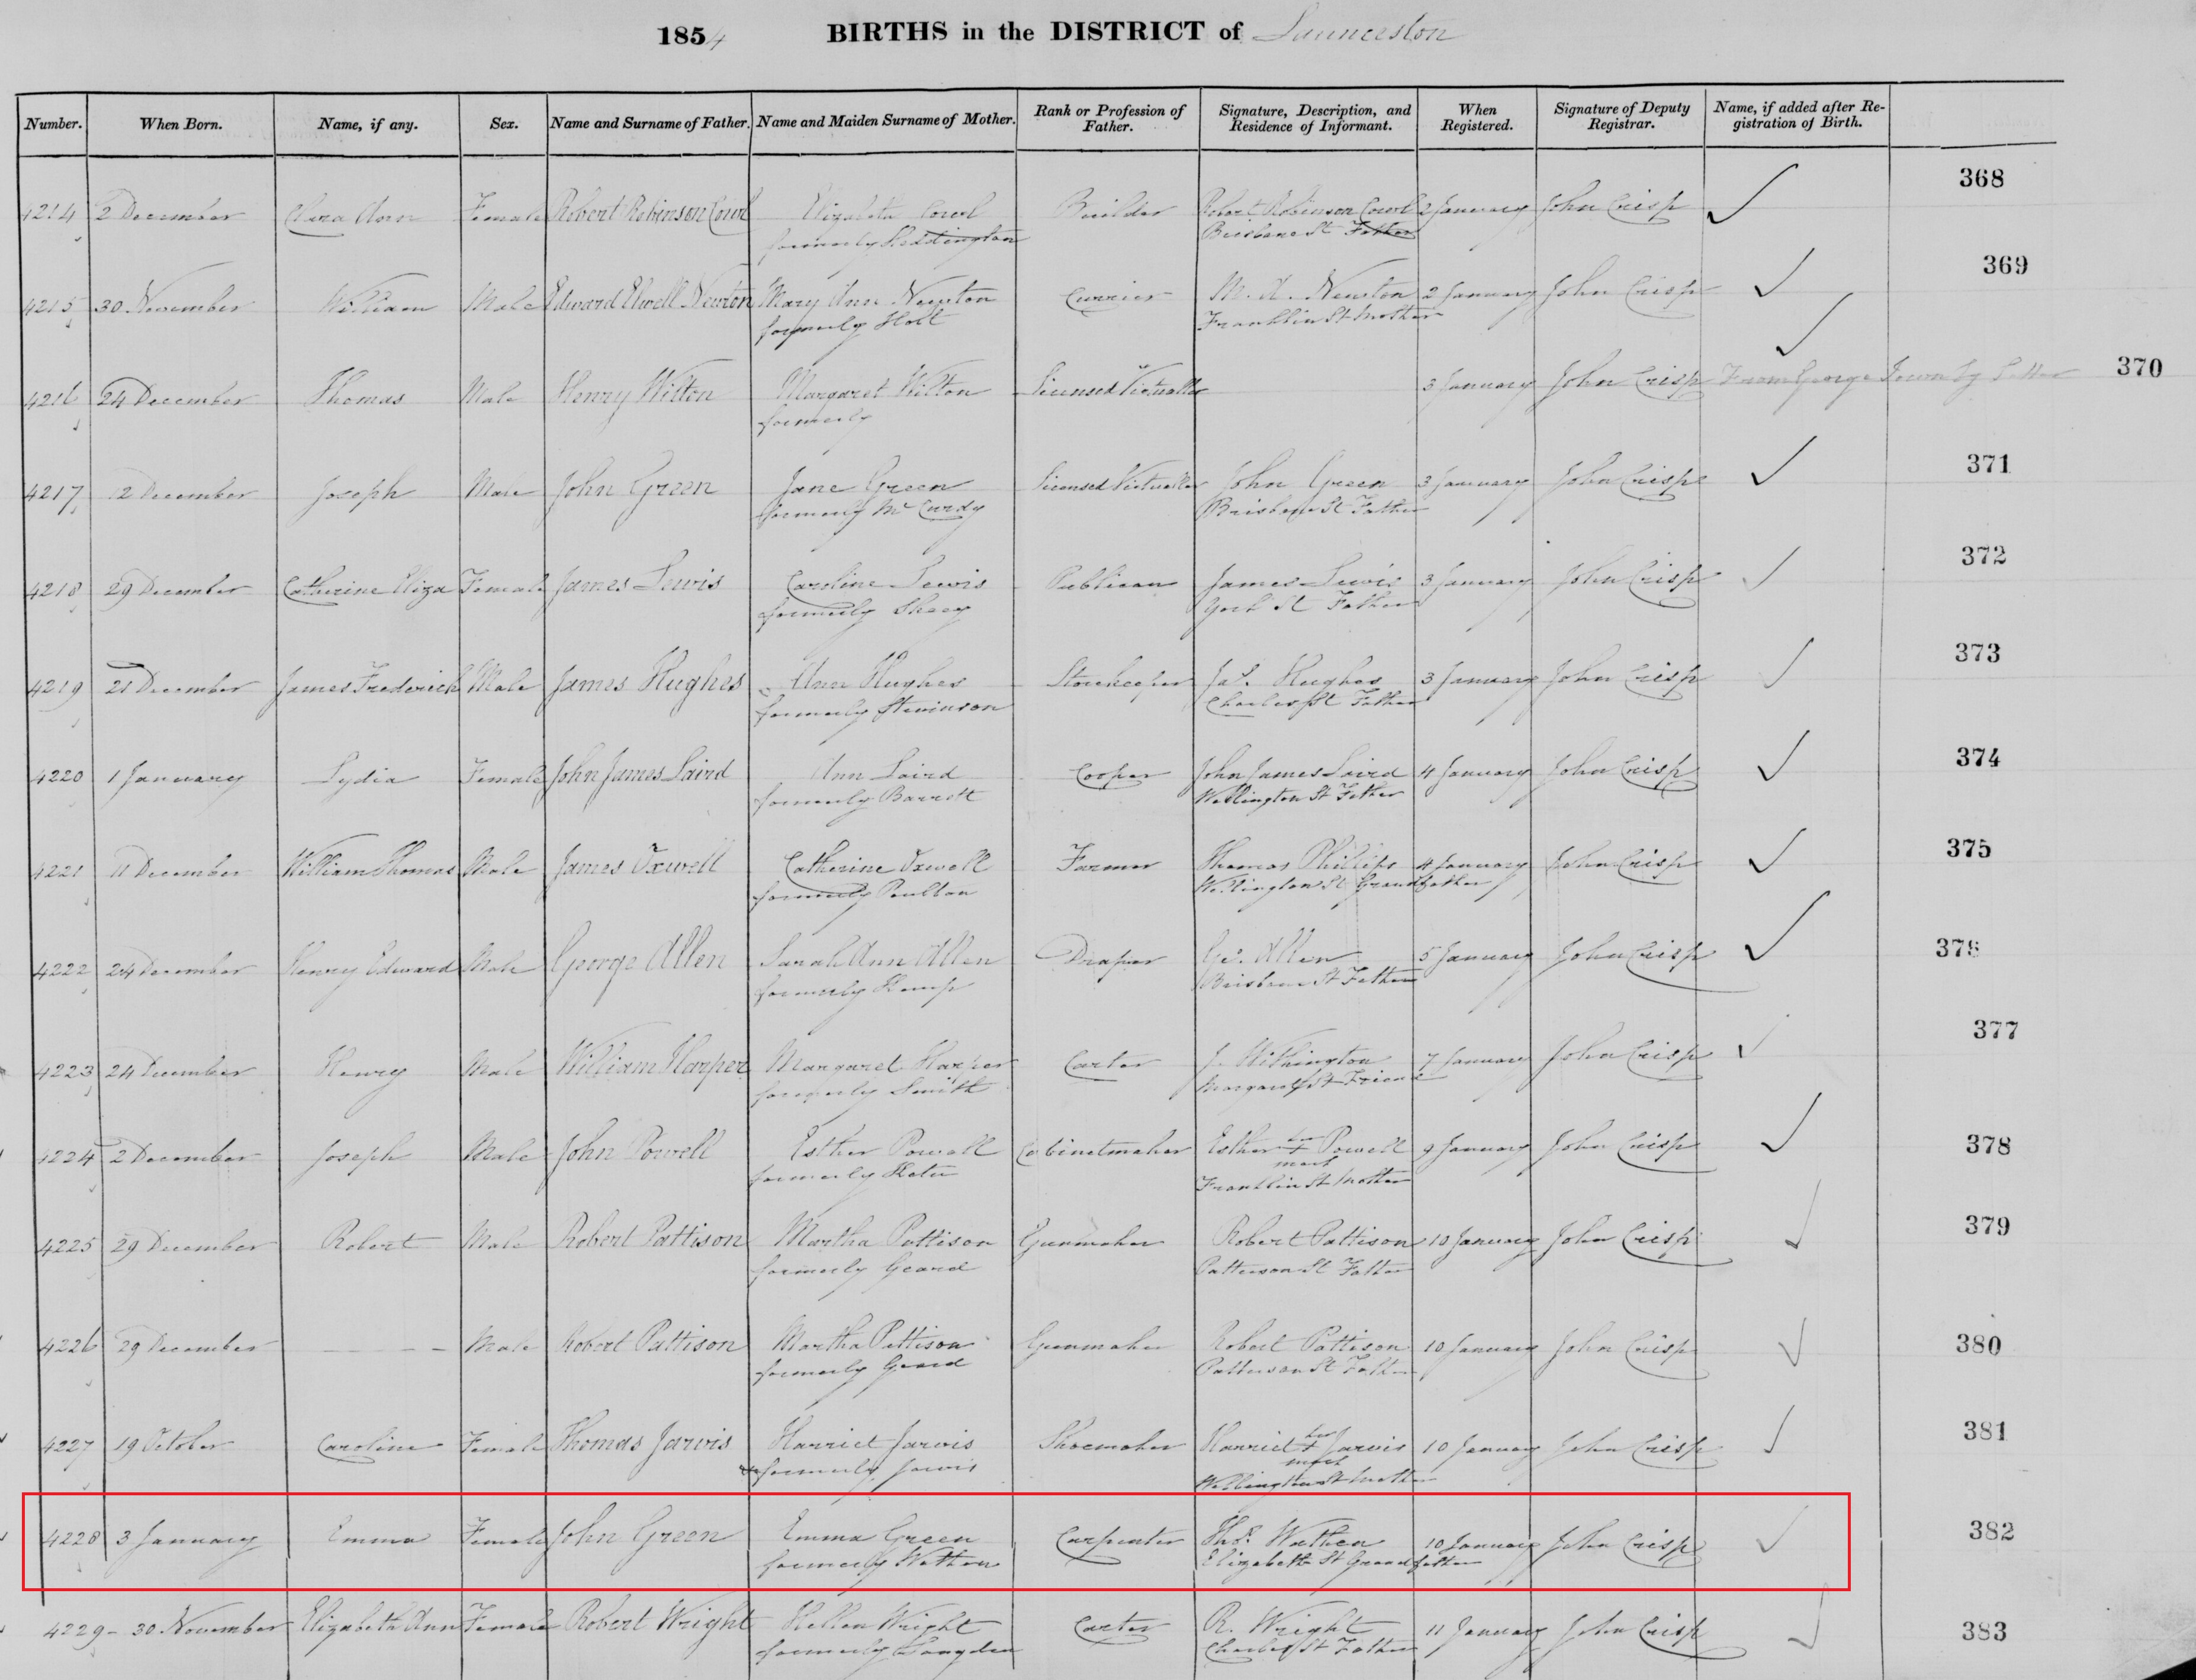 1854 BIRTHS in the DISTRICT of Launceston
Number. When Born. Name, if any. Sex. Name and Surname of Father. Name and Maiden Surname of Mother. Rank or Profession of Father. Signature, Description, and Residence of Informant. When Registered. Signature of Deputy Registrar. Name, if added after Registration of Birth.
368
4214 2 December Clara Ann Female Robert Robinson Cowl Elizabeth Cowl Builder Robert Robinson Cowl 2 January John Crisp
formerly Brisbane St Father
369
4215 30 November William Male Edward Elwell Newton Mary Ann Newton Currier M. A. Newton 2 January John Crisp
formerly Holt Franklin St Mother
4216 24 December Thomas Male Henry Wilton Margaret Wilton Licensed Victualler 3 January John Crisp From George Town by Letter 370
formerly
371
4217 12 December Joseph Male John Green Jane Green Licensed Victualler John Green 3 January John Crisp
formerly McCurdy Brisbane St Father
372
4218 29 December Catherine Eliza Female James Lewis Caroline Lewis Publican James Lewis 3 January John Crisp
formerly York St Father
373
4219 21 December James Frederick Male James Hughes Ann Hughes Storekeeper Jas. Hughes 3 January John Crisp
formerly Stevinson Charles St Father
374
4220 1 January Lydia Female John James Laird Ann Laird Cooper John James Laird 4 January John Crisp
formerly Barrett Wellington St Father
375
4221 11 December William Thomas Male James Oxwell Catherine Oxwell Farmer Thomas Phillips 4 January John Crisp
formerly Poulton Wellington St Grandfather
376
4222 24 December Henry Edward Male George Allen Sarah Ann Allen Draper Geo. Allen 5 January John Crisp
formerly Kemp Brisbane St Father
377
4223 24 December Henry Male William Harper Margaret Harper Carter J. Withington 7 January John Crisp
formerly Smith Margaret St Friend
378
4224 2 December Joseph Male John Powell Esther Powell Cabinetmaker Esther her + mark Powell 9 January John Crisp
formerly Franklin St Mother
379
4225 29 December Robert Male Robert Pattison Martha Pattison Gunmaker Robert Pattison 10 January John Crisp
formerly Geard Patterson St Father
380
4226 29 December - - - Male Robert Pattison Martha Pattison Gunmaker Robert Pattison 10 January John Crisp
formerly Geard Patterson St Father
381
4227 19 October Caroline Female Thomas Jarvis Harriet Jarvis Shoemaker Harriet her + mark Jarvis 10 January John Crisp
formerly Jarvis Wellington St Mother
382
4228 3 January Emma Female John Green Emma Green Carpenter Thos. Wathen 10 January John Crisp
formerly Wathen Elizabeth St Grandfather
383
4229 - 30 November Elizabeth Ann Female Robert Wright Hellen Wright Carter R. Wright 11 January John Crisp
formerly Langden Charles St Father